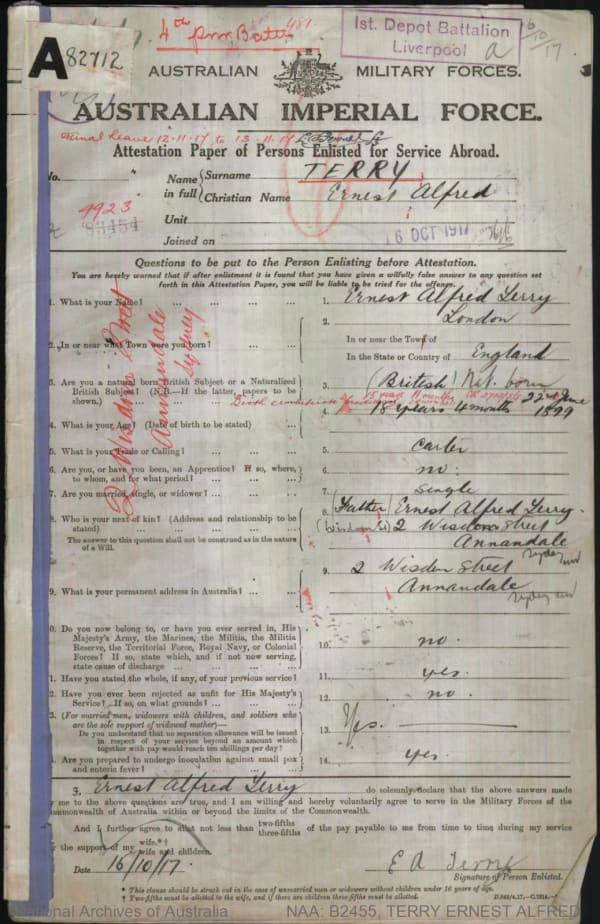 4th
A
82712
1st. Depot Battalion
Liverpool
16/10/17
AUSTRALIAN MILITARY FORCES.
AUSTRALIAN IMPERIAL FORCE.
Final Leave 12-11-17 to 13-11-17
Attestation Paper of Persons Enlisted for Service Abroad.
No.
Name in full
Surname TERRY
Christian Name Ernest Alfred
4923
93454
Unit
Joined on 16 OCT 1917
Questions to be put to the Person Enlisting before Attestation.
You are hereby warned that if after enlistment it is found that you have given a wilfully false answer to any question set
forth in this Attestation Paper, you will be liable to be tried for the offence.
2 Wisdom Street
Annandale
Sydney
1. What is your Name? ... ... ...
1. Ernest Alfred Terry
2. In or near what Town were you born? ...
2. London
In or near the Town of
In the State or Country of England
3. Are you a natural born British Subject or a Naturalized
British Subject? (N.B.—If the latter, papers to be
shown.) ... ... ...
3. (British) Nat. born
4. What is your Age? (Date of birth to be stated) ...
4. 18 years 4 months 22nd June 1899
5. What is your Trade or Calling? ... ...
5. Carter
6. Are you, or have you been, an Apprentice? If so, where,
to whom, and for what period? ... ...
6. no.
7. Are you married, single, or widower? ...
7. Single
8. Who is your next of kin? (Address and relationship to be
stated) ... ... ...
The answer to this question shall not be construed as in the nature
of a Will.
8. (Father) Ernest Alfred Terry.
2 Wisdom Street
Annandale
Sydney NSW
9. What is your permanent address in Australia? ...
9. 2 Wisdom Street
Annandale
Sydney NSW
10. Do you now belong to, or have you ever served in, His
Majesty's Army, the Marines, the Militia, the Militia
Reserve, the Territorial Force, Royal Navy, or Colonial
Forces? If so, state which, and if not now serving,
state cause of discharge ... ...
10. no.
11. Have you stated the whole, if any, of your previous service?
11. yes.
12. Have you ever been rejected as unfit for His Majesty's
Service? If so, on what grounds? ... ...
12. no.
13. (For married men, widowers with children, and soldiers who
are the sole support of widowed mother)—
Do you understand that no separation allowance will be issued
in respect of your service beyond an amount which
together with pay would reach ten shillings per day?
13. Yes.
14. Are you prepared to undergo inoculation against small pox
and enteric fever? ... ...
14. yes.
I, Ernest Alfred Terry do solemnly declare that the above answers made
by me to the above questions are true, and I am willing and hereby voluntarily agree to serve in the Military Forces of the
Commonwealth of Australia within or beyond the limits of the Commonwealth.
And I further agree to allot not less than two-fifths three-fifths of the pay payable to me from time to time during my service
for the support of my wife.*† wife and children.
Date 16/10/17.
E A Terry
Signature of Person Enlisted.
* This clause should be struck out in the case of unmarried men or widowers without children under 16 years of age.
† Two-fifths must be allotted to the wife, and if there are children three-fifths must be allotted.
National Archives of Australia
NAA: B2455, TERRY ERNEST ALFRED